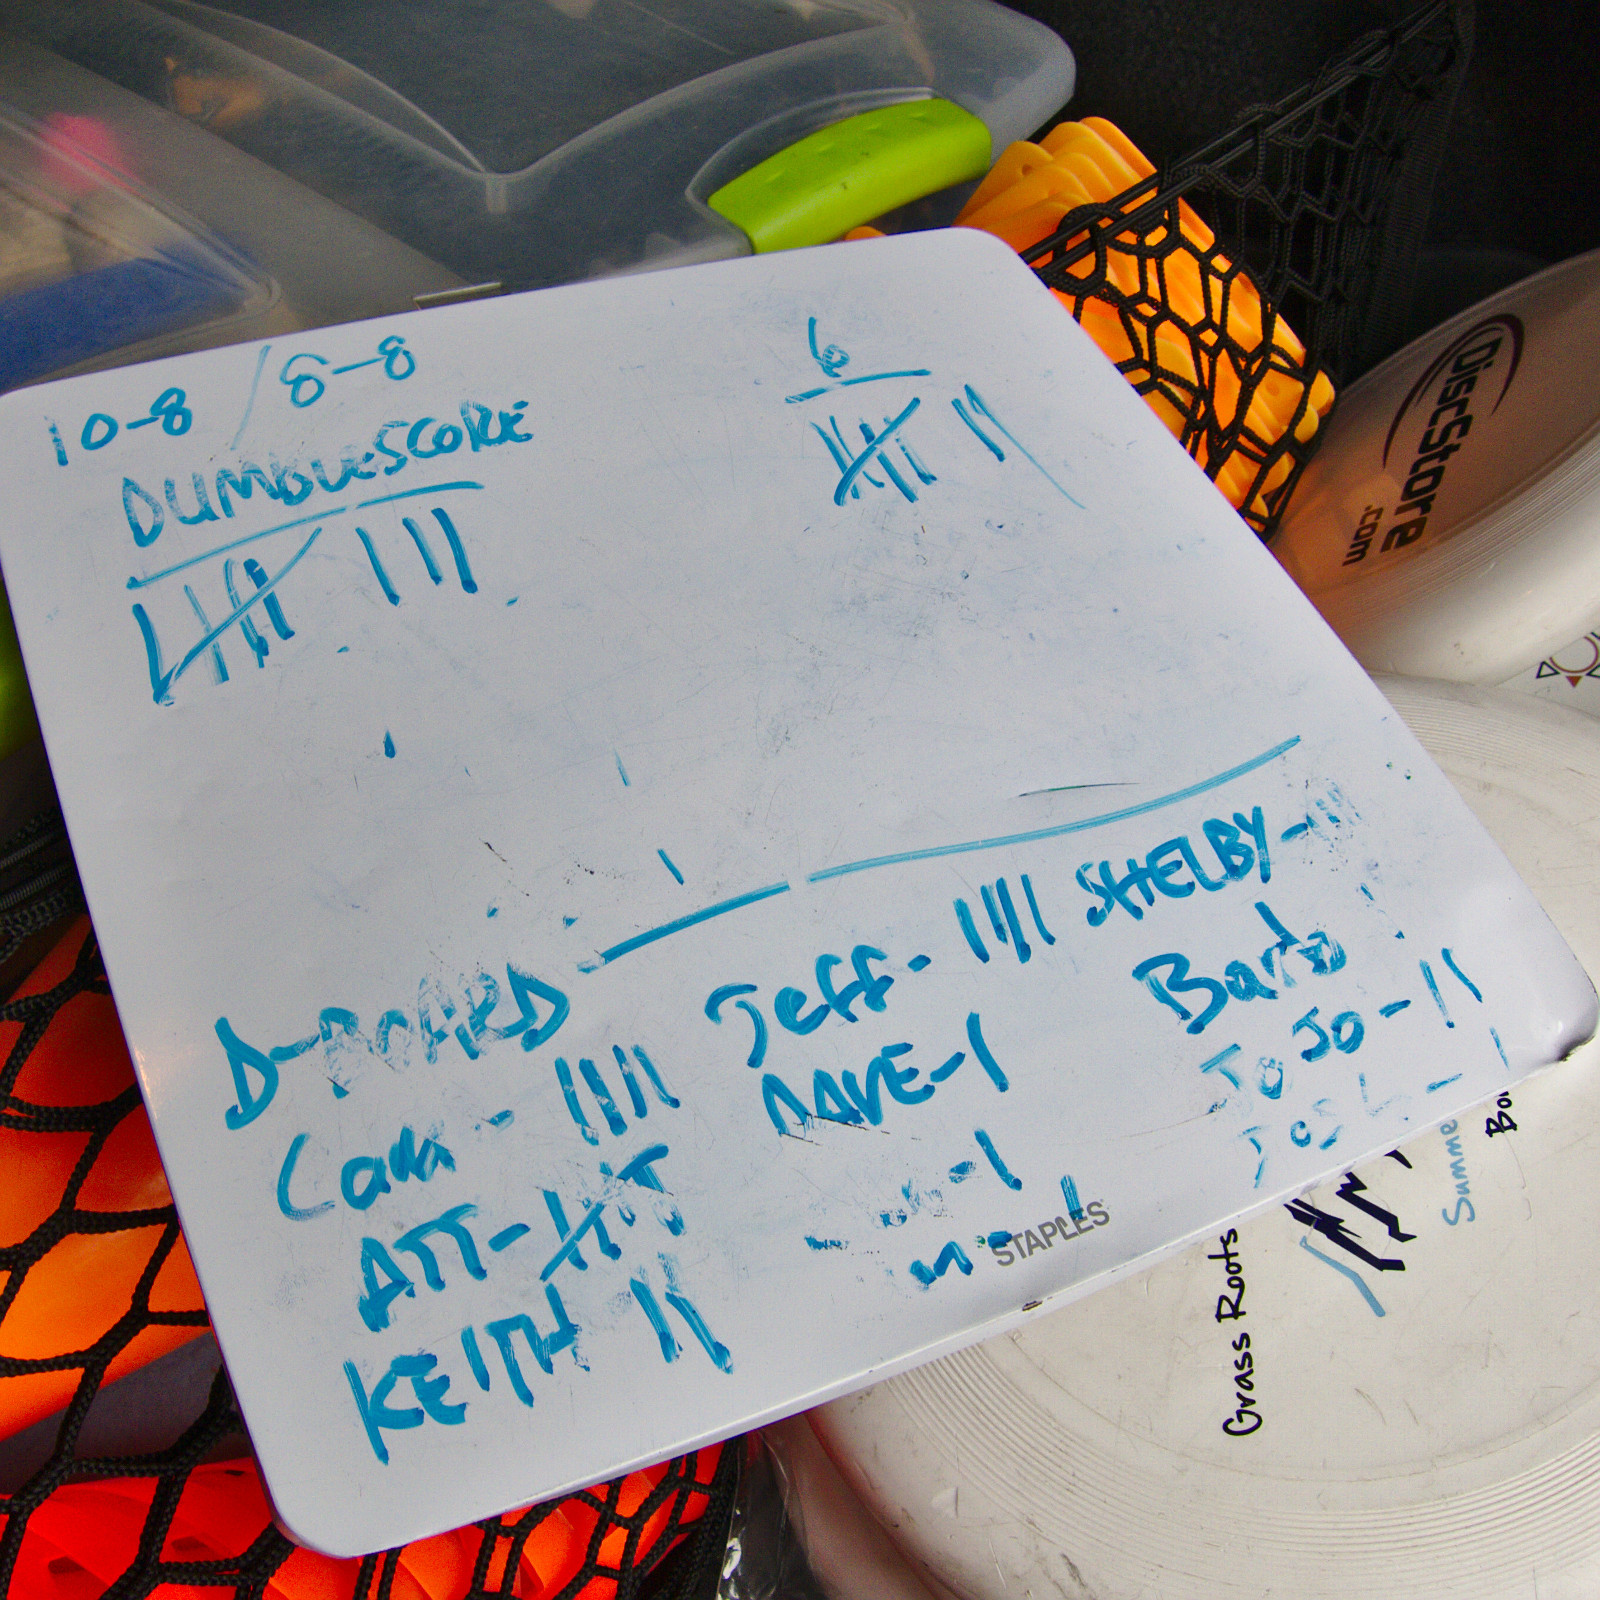 10-8 / 8-8
DUMBLESCORE
6
D-BOARD
ATT-
KEITH
Jeff-
DAVE-1
SHELBY-
Barb
JoJo-
STAPLES
DiscStore
.com
Grass Roots